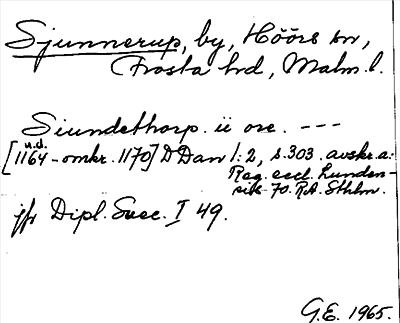 Sjunnerup, by, Höörs sn,
Frosta hd, Malm. l.
Siundethorp. ii ore. ---
u.å.
[1164 - omkr. 1170] D Dan 1:2, s. 303. avskr. a:
Reg. eccl. Lunden-
sis 70. R.A. Sthlm.
jfr Dipl. Suec. I 49.
G.E. 1965.